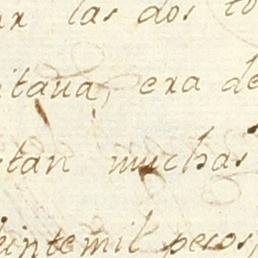 ar las dos to
itaua, era de
stan muchas
veintemil pesos,